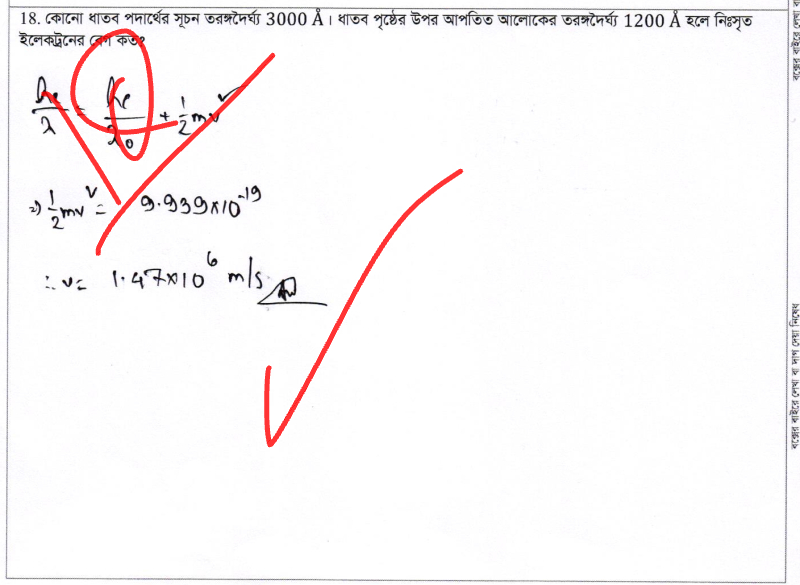 18. কোনো ধাতব পদার্থের সূচন তরঙ্গদৈর্ঘ্য 3000 Å। ধাতব পৃষ্ঠের উপর আপতিত আলোকের তরঙ্গদৈর্ঘ্য 1200 Å হলে নিঃসৃত
ইলেকট্রনের বেগ কত?
hc/λ = hc/λ₀ + 1/2 mv²
⇒ 1/2 mv² = 9.939×10⁻¹⁹
∴ v = 1.47×10⁶ m/s
বক্সের বাইরে লেখা বা দাগ দেয়া নিষেধ